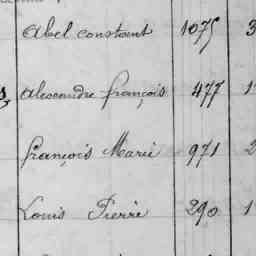 Abel constant 1075 3
Alexandre françois 477 1
françois Marie 971 2
Louis Pierre 290 1